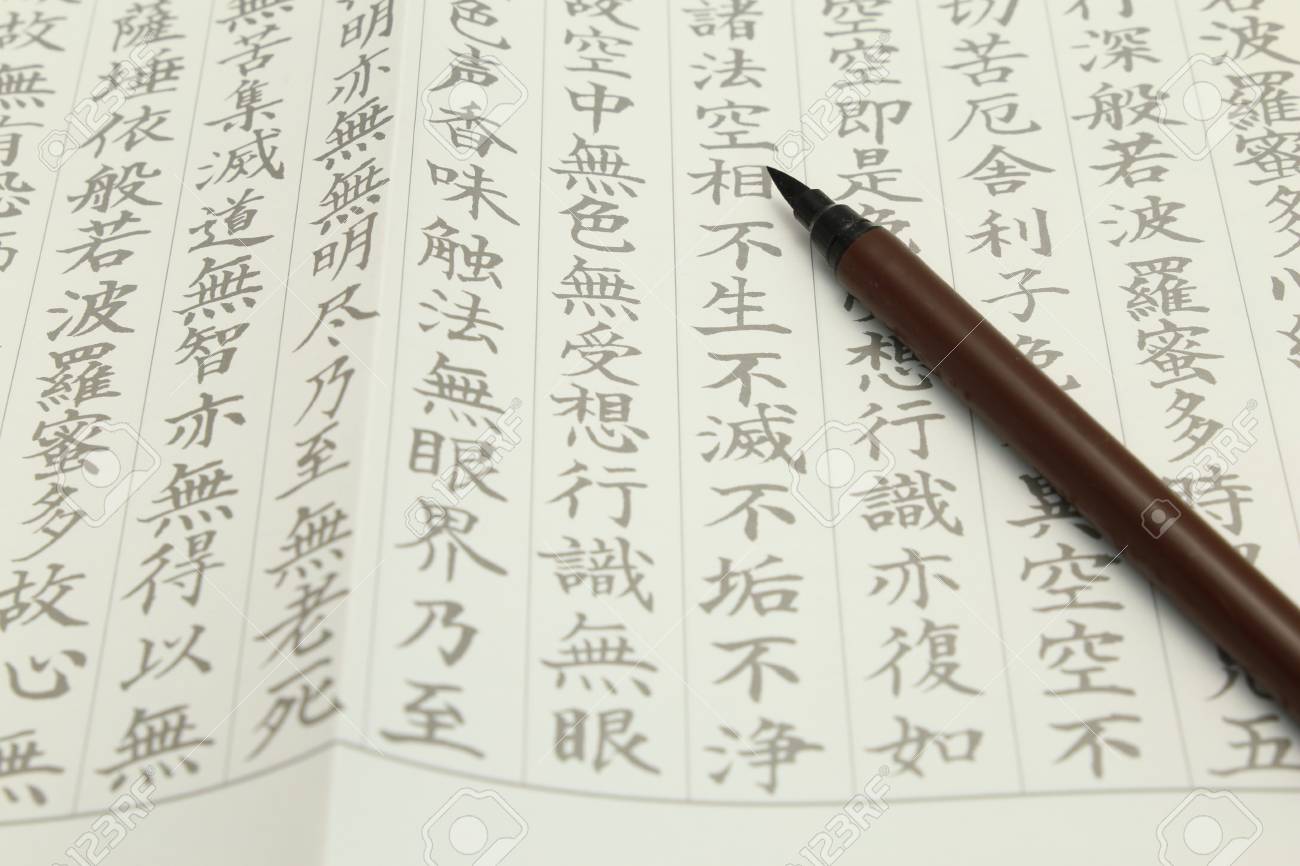 波羅蜜多
行深般若波羅蜜多時 五
切苦厄舎利子色 異空空不
空空即是色 想行識亦復如
諸法空相不生不滅不垢不浄
故空中無色無受想行識無眼
色声香味触法無眼界乃至
明亦無無明尽乃至無老死
無苦集滅道無智亦無得以無
薩埵依般若波羅蜜多故心無
故無有恐
123RF